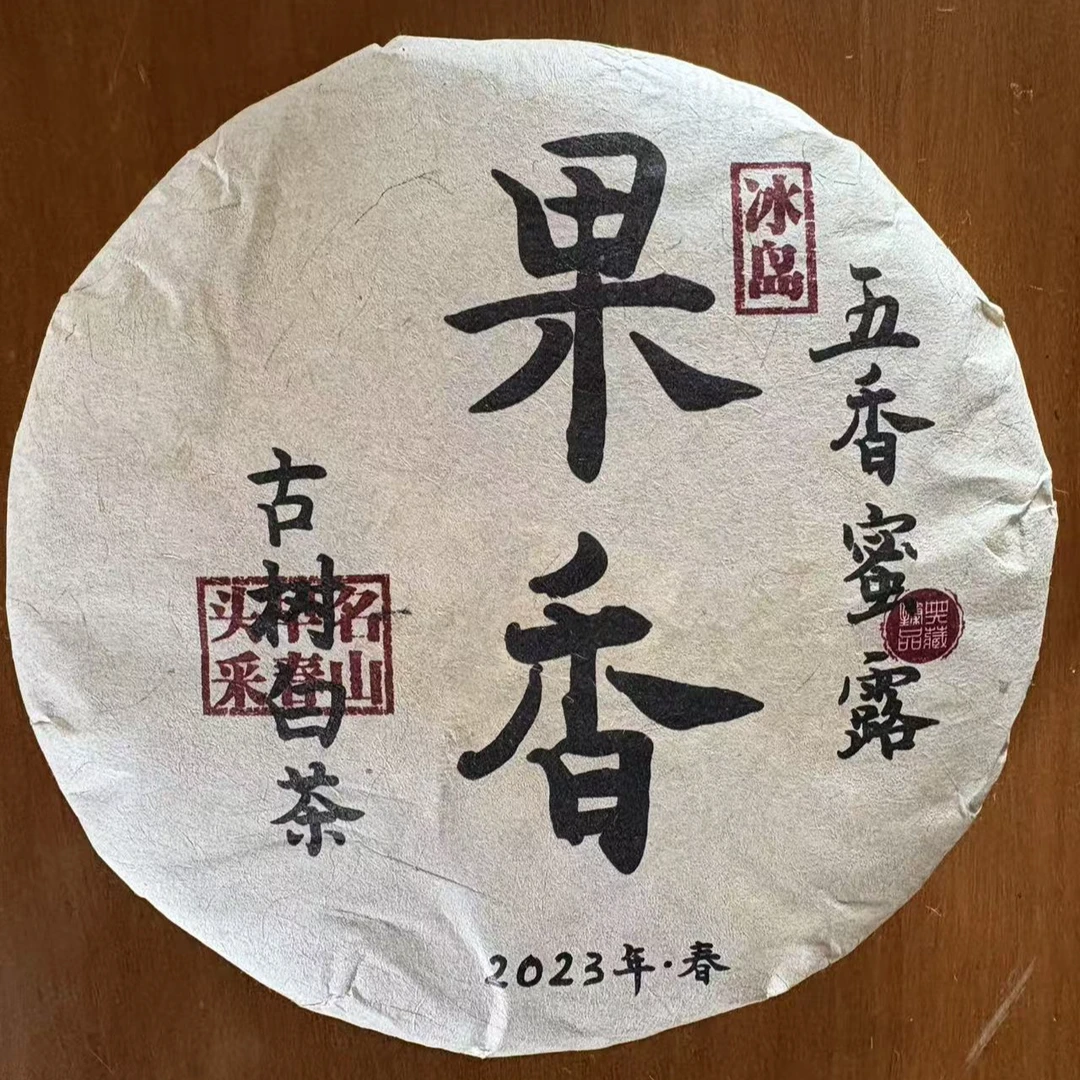 冰岛
五香蜜露
果香
古树白茶
名山
春
头采
2023年·春